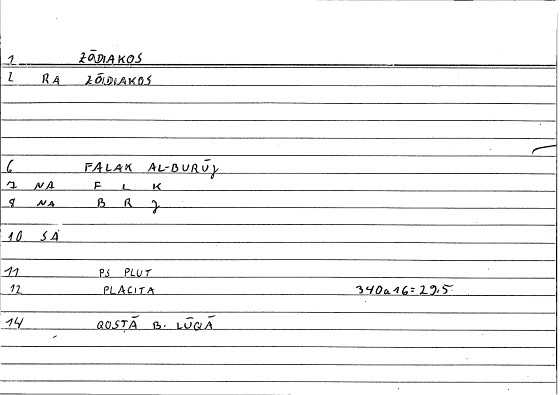 1 ZŌDIAKOS
2 RA ZŌDIAKOS
6 FALAK AL-BURŪJ
7 NA F L K
8 NA B R J
10 SA
11 PS PLUT
12 PLACITA 340a16=29.5
14 QOSṬĀ B. LŪQĀ